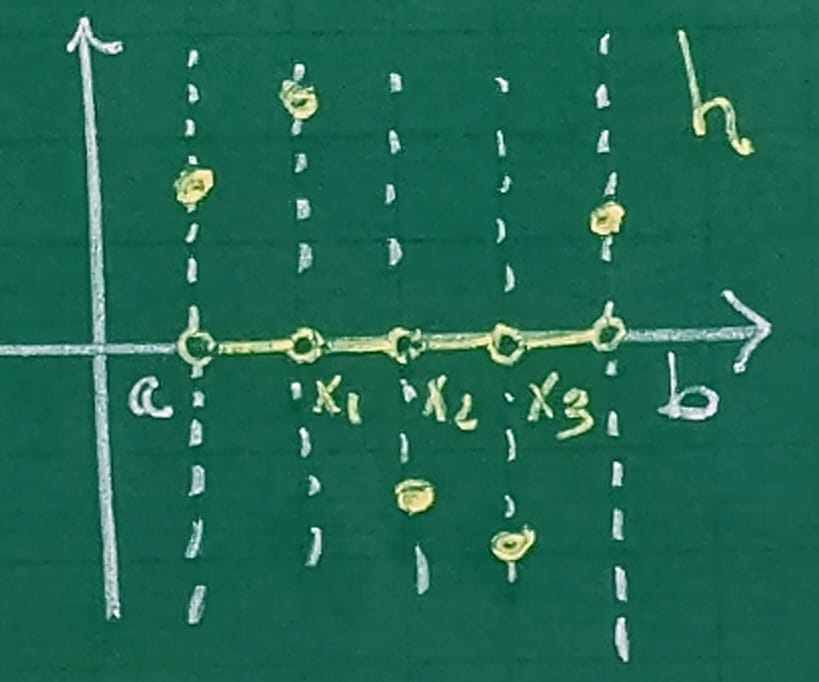 h
a x₁ x₂ x₃ b